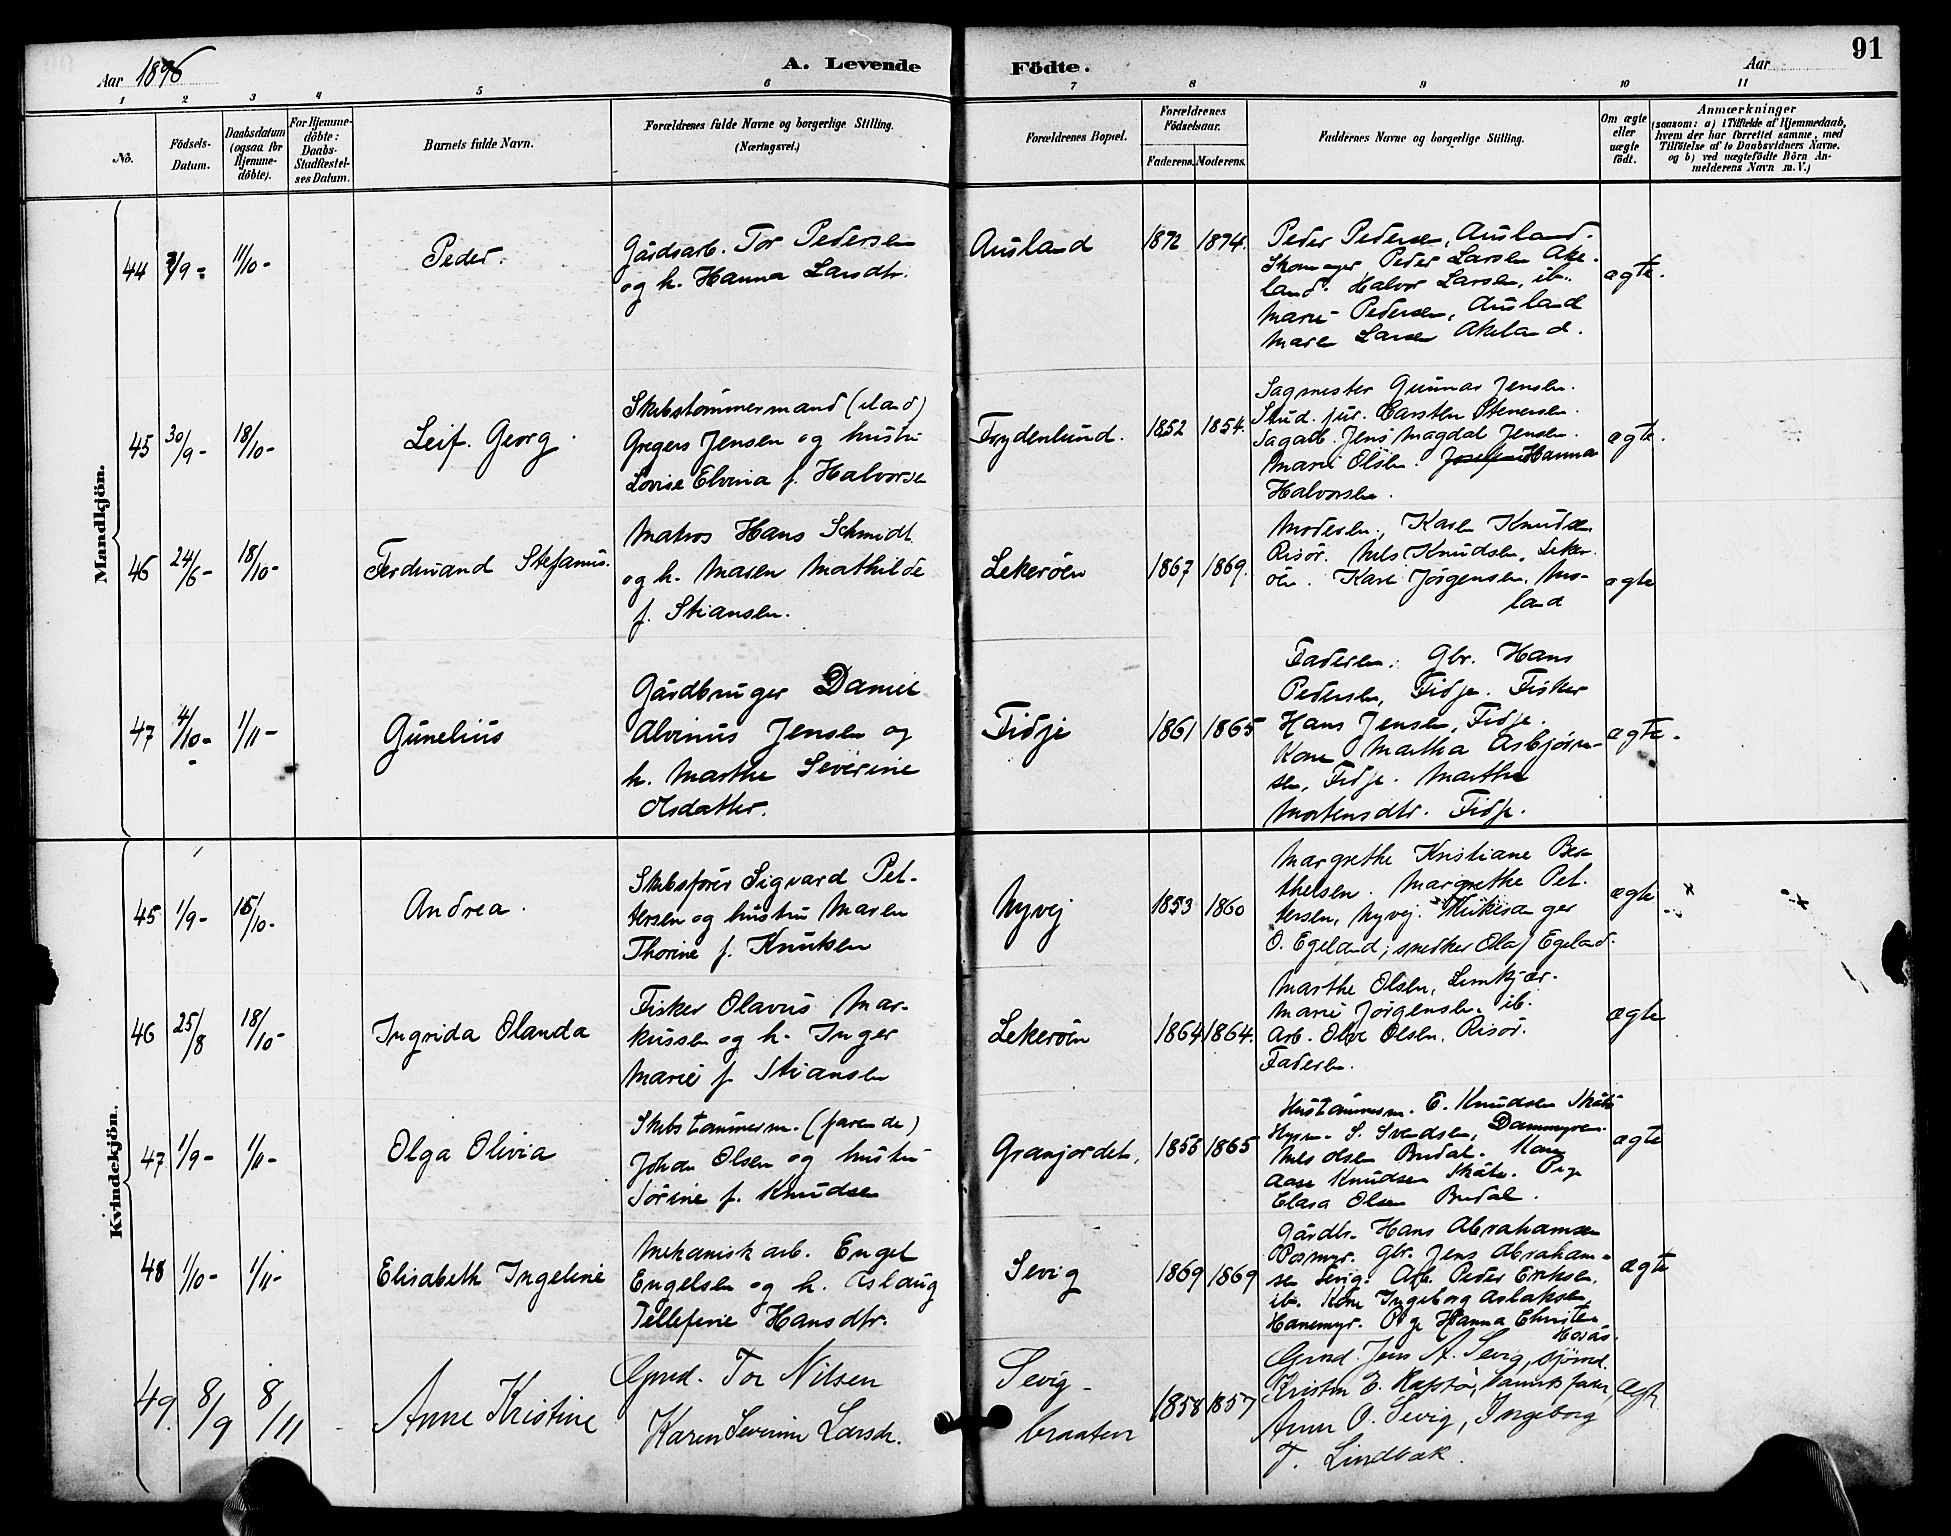 Aar 1896
A. Levende
Födte.
Aar
91
1 2 3 4 5 6 7 8 9 10 11
No.
Födsels-Datum.
Daabsdatum (ogsaa for Hjemme-döbte).
For Hjemme-döbte: Daabs-Stadfæstel-ses Datum.
Barnets fulde Navn.
Forældrenes fulde Navne og borgerlige Stilling.
(Næringsvei.)
Forældrenes Bopæl.
Forældrenes Födselsaar.
Faderens. Moderens.
Faddernes Navne og borgerlige Stilling.
Om ægte eller uægte födt.
Anmærkninger
(saasom: a) i Tilfælde af Hjemmedaab,
hvem der har forrettet samme, med
Tilföielse af to Daabsvidners Navne,
og b) ved uægtefödte Börn An-
melderens Navn m. V.)
Mandkjön.
44 /9- 11/10-
Peder.
Gårdsarb. Tor Pedersen
og h. Hanna Larsdtr.
Ausland
1872 1874.
Peder Pedersen, Ausland.
Skomager Peder Larsen Ake-
land. Halvor Larsen, ib.
Marie Pedersen, Ausland
Maren Larsen Akeland.
ægte.
45 30/9- 18/10-
Leif. Georg.
Skibstömmermand (iland)
Gregers Jensen og hustru
Lovise Elvina f. Halvorsen
Frydenlund.
1852 1854.
Sagmester Gunnar Jensen.
Stud. jur. Carsten Stenersen.
Sagarb. Jens Magdal Jensen.
Marie Olsen. Hanna
Halvorsen.
ægte.
46 24/6- 18/10-
Ferdinand Stefanus.
Matros Hans Schmidt
og h. Maren Mathilde
f. Stiansen.
Lekeröen
1867 1869.
Moderen, Karen Knudsen
Risör. Nils Knudsen, Leker-
öen. Kari Jörgensen, Mo-
land
ægte
47 4/10- 1/11-
Gunelius
Gårdbruger Daniel
Alvinus Jensen og
h. Marthe Severine
Olsdatter.
Fidje
1861 1865
Faderen. Gbr. Hans
Pedersen, Fidje. Fisker
Hans Jensen, Fidje.
Kone Martha Asbjörn-
sen, Fidje. Marthe
Mortensdtr. Fidje.
ægte.
Kvindekjön.
45 1/9- 15/10-
Andrea.
Skibsförer Sigvard Pet-
tersen og hustru Maren
Thorine f. Knutsen
Nyvej
1853 1860
Margrethe Kristiane Ber-
thelsen. Margrethe Pet-
tersen, Nyvej.
O. Egeland; snedker Olaf Egeland.
ægte
46 25/8 18/10-
Ingrida Olanda
Fisker Olavus Mar-
kussen og h. Inger
Marie f. Stiansen
Lekeröen
1864 1864.
Marthe Olsen, Lemkjær.
Marie Jörgensen. ib.
Arb. Olsen. Risör.
Faderen.
ægte
47 1/9- 1/11-
Olga Olivia
Skibstömmerm. (farende)
Johan Olsen og hustru
Sörine f. Knudsen
Granjordet,
1856 1865
Hustömmerm. E. Knudsen Skåti
S. Svendsen, Dammyren.
Nils Olsen Budal. Kone
Aase Knudsen Skåti. Pige
Clara Olsen Budal.
ægte
48 1/10- 1/11-
Elisabeth Ingeline
Mekanisk arb. Engel
Engelsen og h. Aslaug
Tellefine Hansdtr.
Sevig
1869 1869
Gårdbr. Hans Abrahamsen
Posmyr. Gbr. Jens Abraham-
sen Sevig. Arb. Peder Eriksen,
ib. Kone Ingeborg Aslaksen,
Hanemyr. Pige Hanna Christen-
ægte
49. 8/9 8/11
Anne Kristine
Grmd. Tor Nilsen
Karen Severine Larsdr.
Sevig-
braaten
1858 1857
Grmd. Jens A. Sevig, sjömd.
Kristen E. Barnets fader,
Anne O. Sevig, Ingeborg
T. Lindbæk.
Ægte